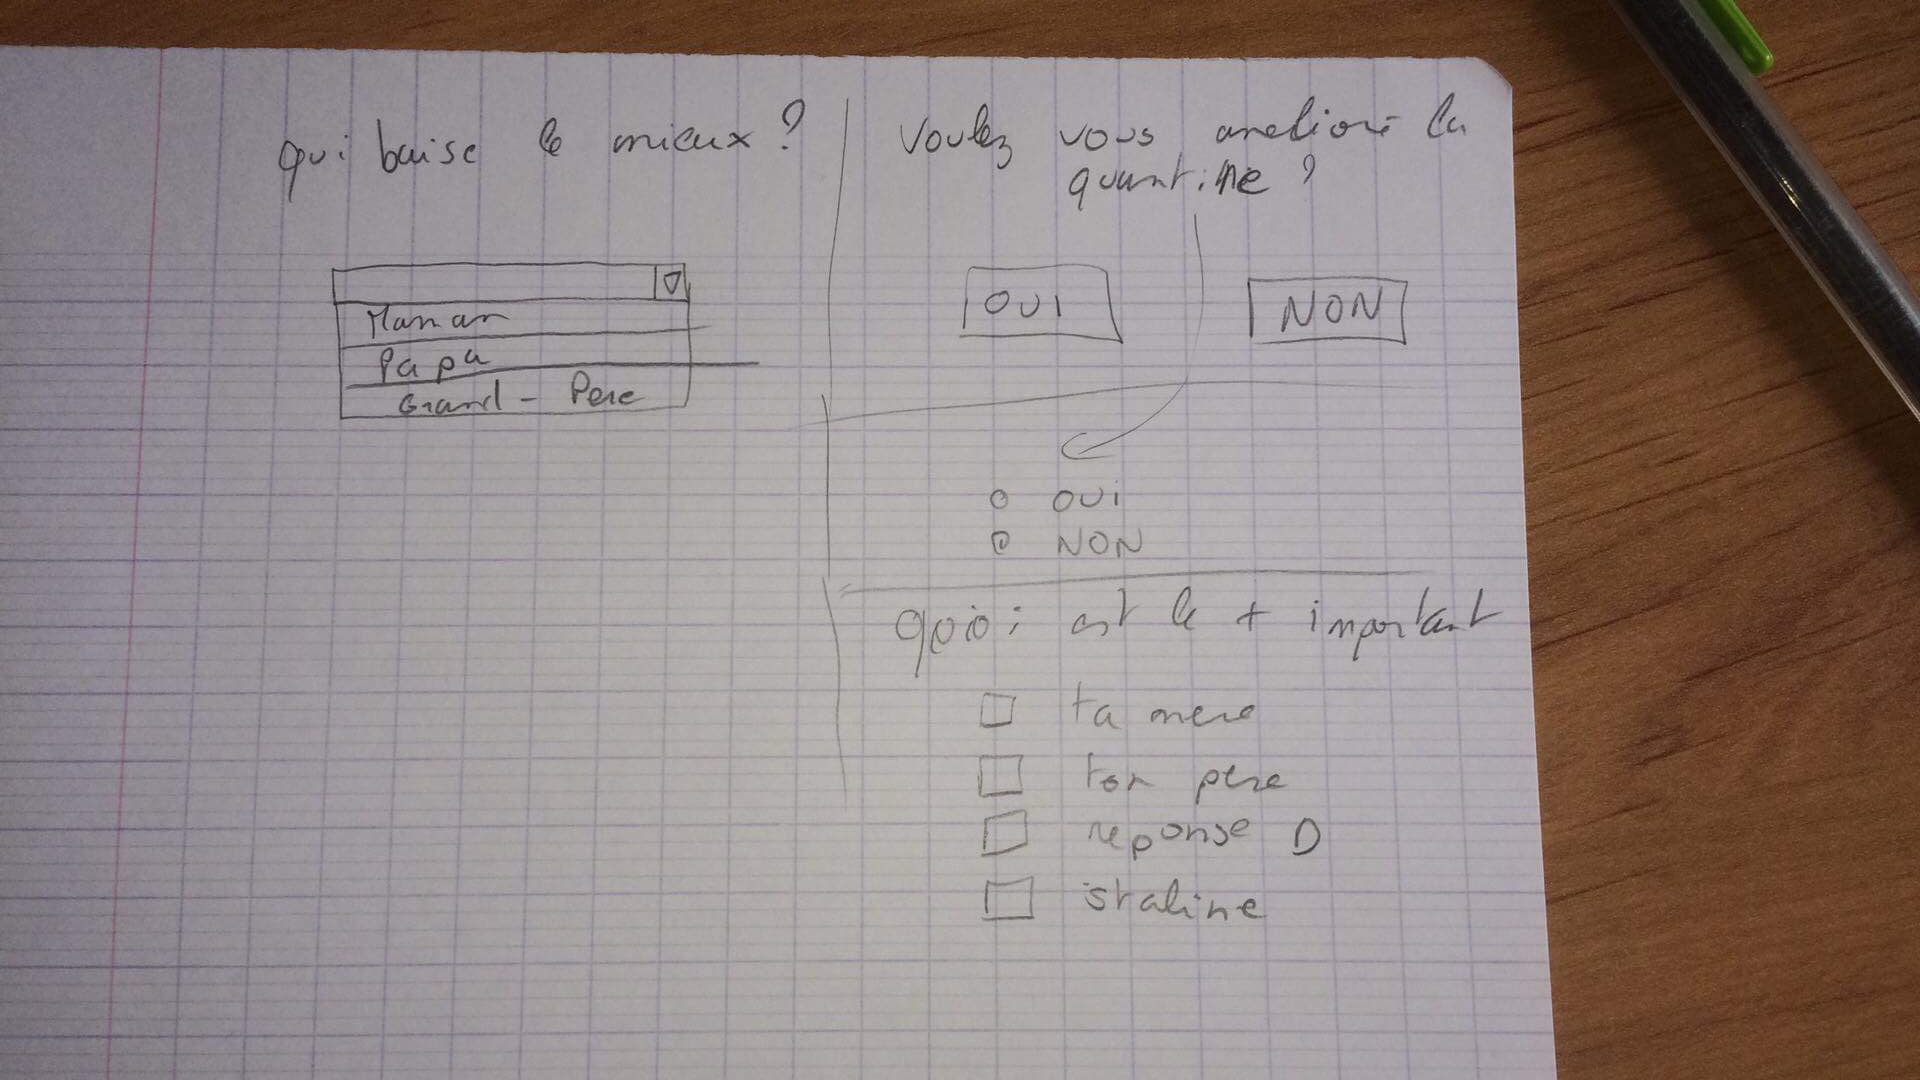 qui baise le mieux ?
Maman
Papa
Grand - Pere
Voulez vous ameliore la
quantine ?
OUI
NON
OUi
NON
qoi est le + important
ta mere
ton pere
reponse D
staline